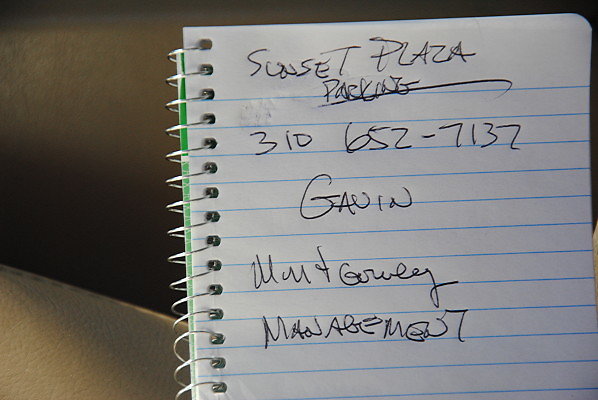 SUNSET PLAZA
PARKING
310 652-7137
GAVIN
Montgomery
MANAGEMENT